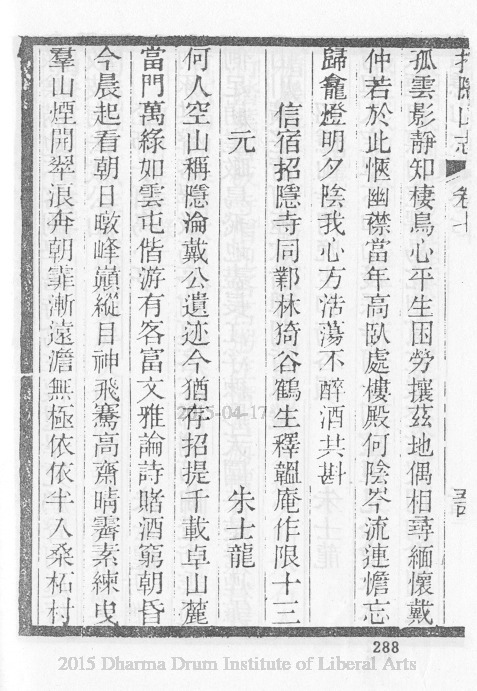 招隱山志 卷十 五
孤雲影靜知棲鳥心平生困勞攘茲地偶相尋緬懷戴
仲若於此愜幽襟當年高臥處樓殿何陰岑流連憺忘
歸龕燈明夕陰我心方浩蕩不醉酒共斟
信宿招隱寺同鄴林猗谷鶴生釋韞庵作限十三
元 朱士龍
何人空山稱隱淪戴公遺迹今猶存招提千載卓山麓
當門萬緣如雲屯偕游有客富文雅論詩賭酒窮朝昏
今晨起看朝日暾峰巔縱目神飛騫高齋晴霽素練曳
羣山煙開翠浪奔朝霏漸遠澹無極依依半入桑柘村
2015-04-17
288
2015 Dharma Drum Institute of Liberal Arts